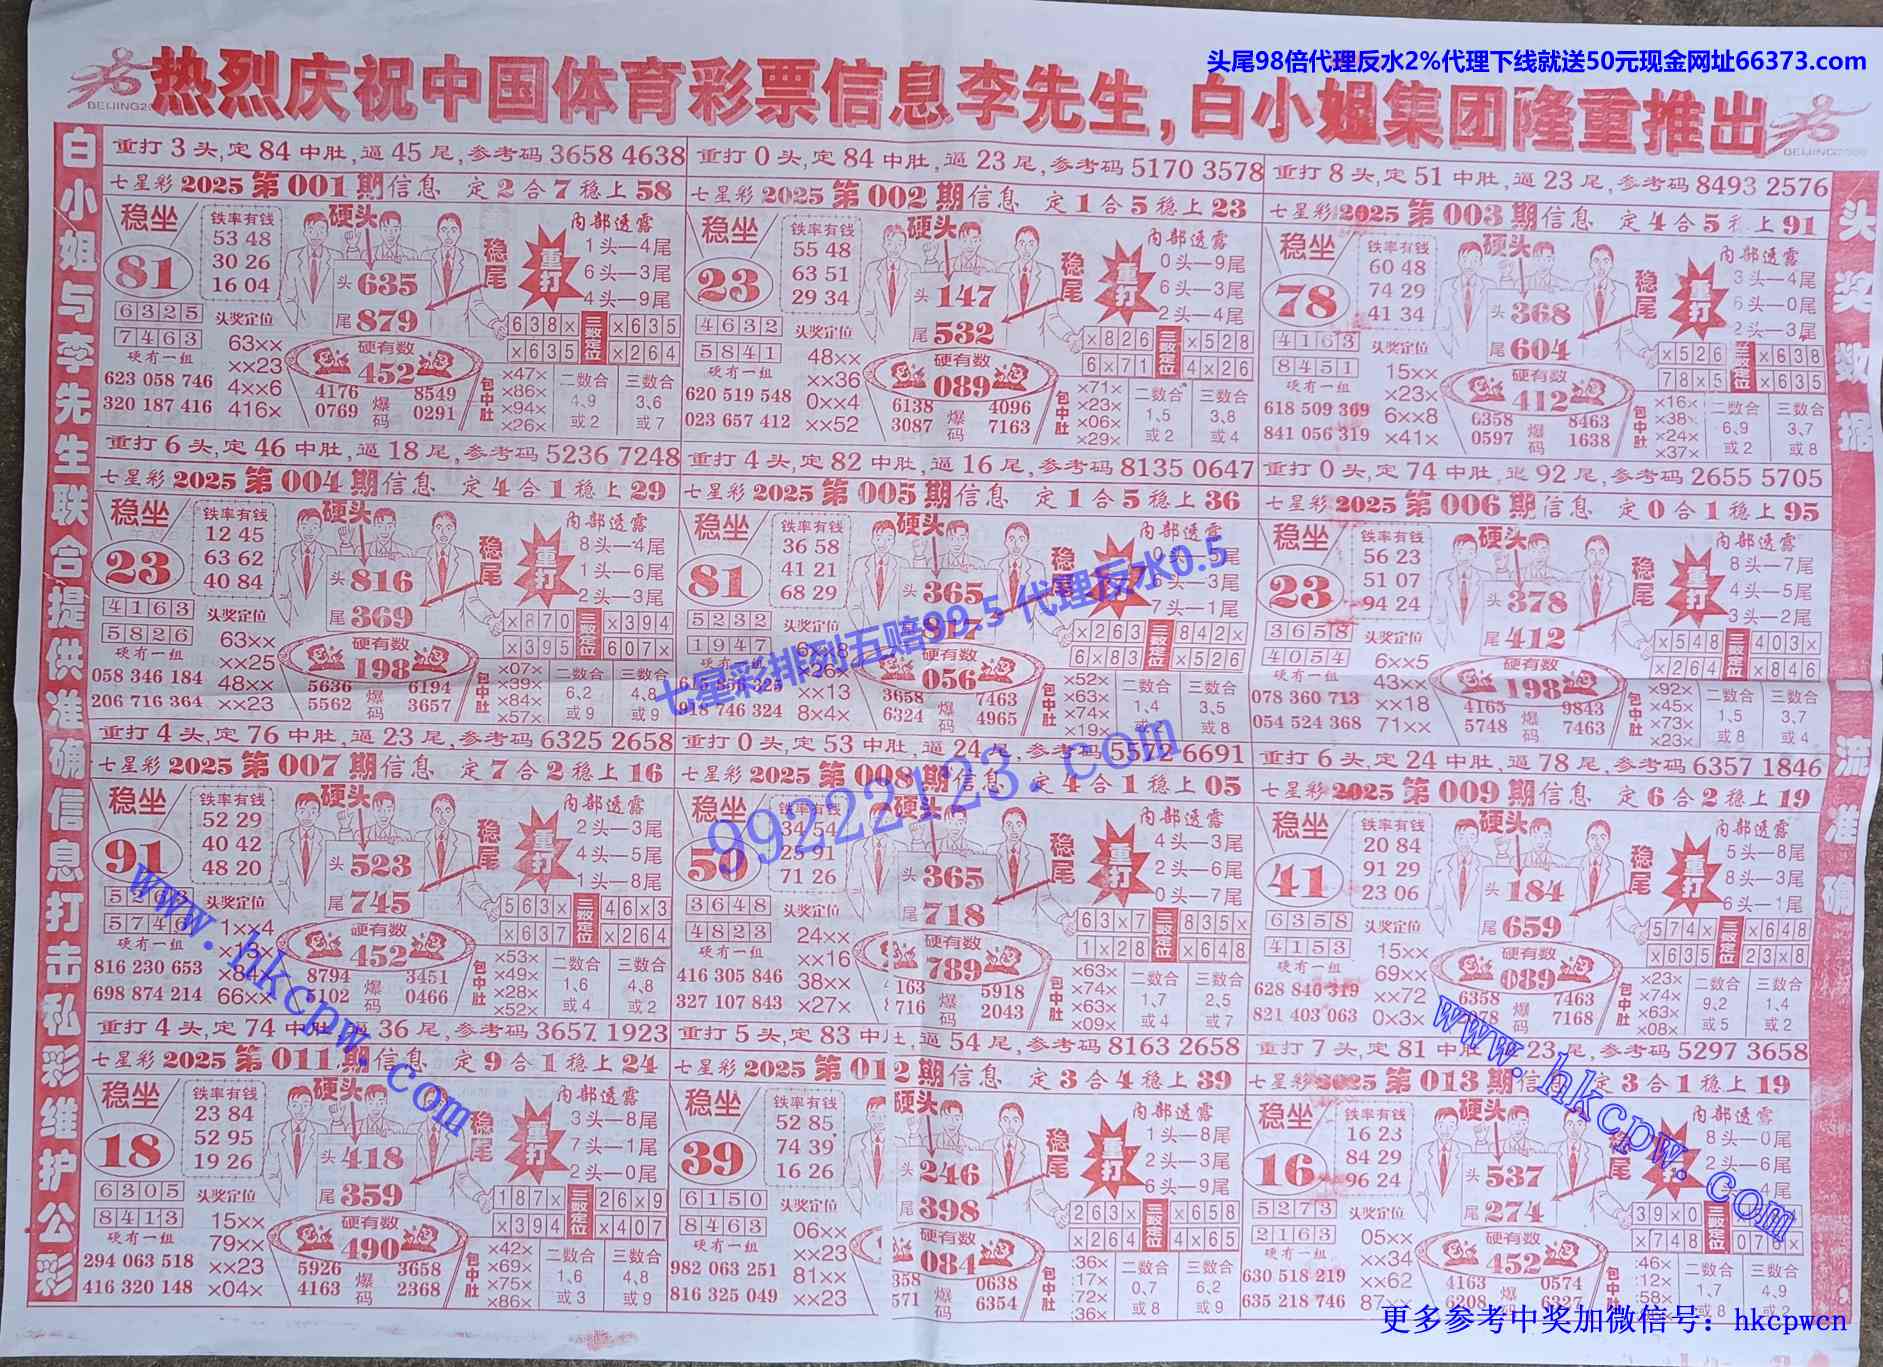 头尾98倍代理反水2%代理下线就送50元现金网址66373.com
热烈庆祝中国体育彩票信息李先生,白小姐集团隆重推出
白小姐与李先生联合提供准确信息打击私彩维护公彩
头奖数据一流准确
重打3头,定84中肚,逼45尾,参考码3658 4638
七星彩2025第001期信息 定2合7稳上58
稳坐 81
铁率有钱
53 48
30 26
16 04
硬头
头635
尾879
稳尾
重打
内部透露
1头—4尾
6头—3尾
4头—9尾
6325
7463
硬有一组
623 058 746
320 187 416
头奖定位
63××
××23
4××6
416×
硬有数
452
4176 8549
0769 爆码 0291
638× 三数定位 ×635
×635 ×264
包中肚
×47×
×86×
×94×
×26×
二数合
4,9
或2
三数合
3,6
或7
重打0头,定84中肚,逼23尾,参考码5170 3578
七星彩2025第002期信息 定1合5稳上23
稳坐 23
铁率有钱
55 48
63 51
29 34
硬头
头147
尾532
稳尾
重打
内部透露
0头—9尾
6头—3尾
2头—4尾
4632
5841
硬有一组
620 519 548
023 657 412
头奖定位
48××
××36
0××4
××52
硬有数
089
6138 4096
3087 爆码 7163
×826 三数定位 ×528
6×71 4×26
包中肚
×71×
×23×
×06×
×29×
二数合
1,5
或2
三数合
3,8
或4
重打8头,定51中肚,逼23尾,参考码8493 2576
七星彩2025第003期信息 定4合5 上91
稳坐 78
铁率有钱
60 48
74 29
41 34
硬头
头368
尾604
稳尾
重打
内部透露
3头—4尾
6头—0尾
2头—3尾
4163
8451
硬有一组
618 509 369
841 056 319
头奖定位
15××
×23×
6××8
×41×
硬有数
412
6358 8463
0597 爆码 1638
×526 三数定位 ×638
78×5 ×635
包中肚
×16×
×38×
×24×
×37×
二数合
6,9
或2
三数合
3,7
或8
重打6头,定46中肚,逼18尾,参考码5236 7248
七星彩2025第004期信息 定4合1稳上29
稳坐 23
铁率有钱
12 45
63 62
40 84
硬头
头816
尾369
稳尾
重打
内部透露
8头—4尾
1头—6尾
2头—3尾
4163
5826
硬有一组
058 346 184
206 716 364
头奖定位
63××
××25
48××
××23
硬有数
198
5636 6194
5562 爆码 3657
×870 三数定位 ×394
×395 607×
包中肚
×07×
×39×
×84×
×57×
二数合
6,2
或9
三数合
4,8
或9
重打4头,定82中肚,逼16尾,参考码8135 0647
七星彩2025第005期信息 定1合5稳上36
稳坐 81
铁率有钱
36 58
41 21
68 29
硬头
头365
稳尾
内部透露
7头—1尾
5232
1947
硬有一组
918 746 324
××13
8×4×
硬有数
056
3658 7463
6324 爆码 4965
×263 三数定位 842×
6×83 ×526
包中肚
×52×
×63×
×74×
×19×
二数合
1,4
三数合
3,5
或8
重打0头,定74中肚,逼92尾,参考码2655 5705
七星彩2025第006期信息 定0合1稳上95
稳坐 23
铁率有钱
56 23
51 07
94 24
硬头
头378
尾412
稳尾
重打
内部透露
8头—7尾
4头—5尾
3头—2尾
3658
4054
硬有一组
078 360 713
054 524 368
头奖定位
6××5
43××
××18
71××
硬有数
198
4165 9843
5748 爆码 7463
×548 三数定位 403×
×264 ×846
包中肚
×92×
×45×
×73×
×23×
二数合
1,5
或8
三数合
3,7
或4
重打4头,定76中肚,逼23尾,参考码6325 2658
七星彩2025第007期信息 定7合2稳上16
稳坐 91
铁率有钱
52 29
40 42
48 20
硬头
头523
尾745
稳尾
重打
内部透露
2头—3尾
4头—5尾
1头—8尾
硬有一组
816 230 653
698 874 214
头奖定位
1××4
66××
硬有数
452
8794 3451
爆码 0466
563× 三数定位 46×3
×637 ×264
包中肚
×53×
×49×
×28×
×52×
二数合
1,6
或4
三数合
4,8
或2
重打0头,定53中肚,逼24尾,参考码5572 6691
七星彩2025第008期信息 定4合1稳上05
稳坐 59
铁率有钱
34 54
25 91
71 26
硬头
头365
尾718
稳尾
重打
内部透露
4头—3尾
2头—6尾
0头—7尾
3648
4823
硬有一组
416 305 846
327 107 843
头奖定位
24××
××16
38××
×27×
硬有数
789
163 5918
716 爆码 2043
63×7 三数定位 835×
1×28 ×648
包中肚
×63×
×74×
×63×
×09×
二数合
1,7
或4
三数合
2,5
或7
重打6头,定24中肚,逼78尾,参考码6357 1846
七星彩2025第009期信息 定6合2稳上19
稳坐 41
铁率有钱
20 84
91 29
23 06
硬头
头184
尾659
稳尾
重打
内部透露
5头—8尾
8头—3尾
6头—1尾
6358
4153
硬有一组
628 840 319
821 403 063
头奖定位
15××
69××
××72
0×3×
硬有数
089
6358 7463
爆码 7168
574× 三数定位 ×648
×635 23×8
包中肚
×23×
×74×
×63×
×08×
二数合
9,2
或5
三数合
1,4
或2
重打4头,定74中肚,逼36尾,参考码3657 1923
七星彩2025第011期信息 定9合1稳上24
稳坐 18
铁率有钱
23 84
52 95
19 26
硬头
头418
尾359
稳尾
重打
内部透露
3头—8尾
7头—1尾
2头—0尾
6305
8413
硬有一组
294 063 518
416 320 148
头奖定位
15××
79××
××23
×04×
硬有数
490
5926 3658
4163 爆码 2368
187× 三数定位 26×9
×394 ×407
包中肚
×42×
×69×
×75×
×86×
二数合
1,6
或3
三数合
4,8
或9
重打5头,定83中肚,逼54尾,参考码8163 2658
七星彩2025第012期信息 定3合4稳上39
稳坐 39
铁率有钱
52 85
74 39
16 26
硬头
头246
尾398
稳尾
重打
内部透露
1头—8尾
2头—3尾
6头—9尾
6150
8463
硬有一组
982 063 251
816 325 049
头奖定位
06××
××23
81××
××23
硬有数
084
358 0638
571 爆码 6354
263× 三数定位 ×658
×264 4×65
包中肚
36×
17×
72×
36×
二数合
0,7
或8
三数合
6,2
或9
重打7头,定81中肚,逼23尾,参考码5297 3658
七星彩2025第013期信息 定3合1稳上19
稳坐 16
铁率有钱
16 23
84 29
96 24
硬头
头537
尾274
内部透露
8头—0尾
2头—6尾
4尾
5273
2163
硬有一组
630 518 219
635 218 746
头奖定位
05××
××34
××62
87××
硬有数
452
4163 0574
6208 爆码 6327
39×0 三数定位
×748 07
包中肚
46×
12×
58×
二数合
1,7
或8
三数合
4,9
或2
七星彩排列五赔99.5 代理反水0.5
99222123.com
www.hkcpw.com
www.hkcpw.com
更多参考中奖加微信号：hkcpwcn